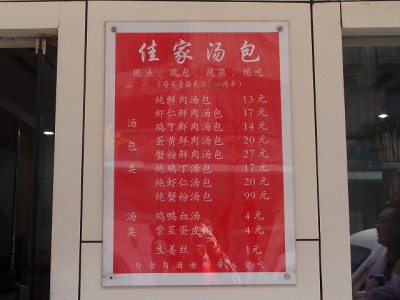 佳家汤包
现点、现包、现蒸、现吃
汤包类
纯鲜肉汤包 13元
虾仁鲜肉汤包 17元
鸡丁鲜肉汤包 14元
蛋黄鲜肉汤包 20元
蟹粉鲜肉汤包 27元
纯鸡丁汤包 17元
纯虾仁汤包 20元
纯蟹粉汤包 99元
汤类
鸡鸭血汤 4元
紫菜蛋皮汤 4元
生姜丝 1元